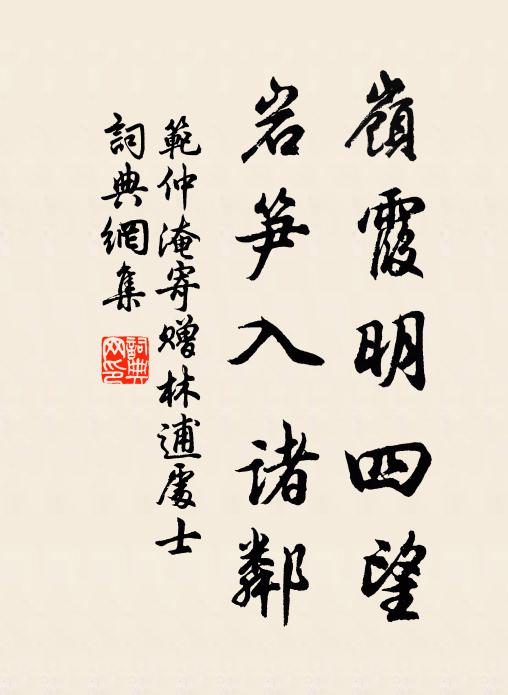 嶺霞明四望
岩笋入诸鄰
範仲淹寄赠林逋處士
詞典網集
詞典
网印